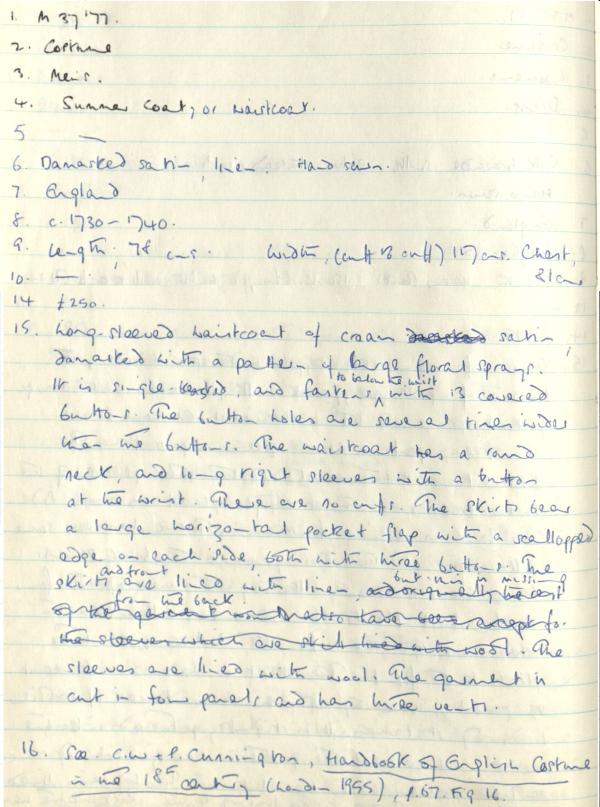 1. M 37'77.
2. Costume
3. Men's.
4. Summer coat, or waistcoat.
5 —
6. Damasked satin, linen. Hand sewn.
7. England
8. c. 1730 – 1740.
9. Length: 78 cms. Width, (cuff to cuff) 157 cms. Chest,
81 cms
10. —
14 £250.
15. Long-sleeved waistcoat of cream damasked satin,
damasked with a pattern of large floral sprays.
to below the waist
It is single-breasted, and fastens, with 13 covered
buttons. The button holes are several times wider
than the buttons. The waistcoat has a round
neck, and long tight sleeves with a button
at the wrist. There are no cuffs. The skirts bear
a large horizontal pocket flap with a scallopped
edge on each side, both with three buttons. The
and front but this is missing
skirts are lined with linen, and originally the rest
from the back.
of the garment would also have been, except for
the sleeves which are still lined with wool. The
sleeves are lined with wool. The garment is
cut in four panels and has three vents.
16. See C.W + P. Cunnington, Handbook of English Costume
in the 18th century (London 1955), p.67. Fig 16.